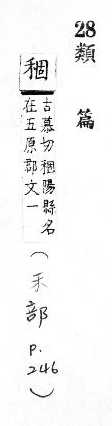 28類篇
稒
古慕切稒陽縣名
在五原郡文一
(禾部 p.246)